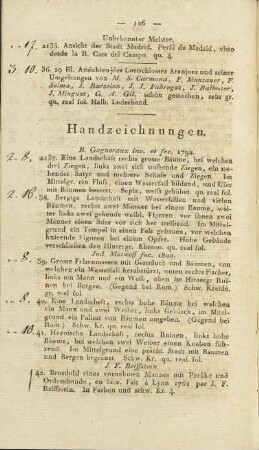 — 126 —
Unbekannter Meister.
.. 17. 2135. Ansicht der Stadt Madrid. Perfil de Madrid, visto
desde la R. Casa del Campo. qu. 4.
3. 10. 36. 20 Bl. Ansichten des Lustschlosses Aranjuez und seiner
Umgebungen von M. S. Carmona, F. Muntaner, F.
Selma, J. Barzelon, J. J. Fabregat, J. Ballester,
J. Minguet, G. A. Gill, schön gestochen, sehr gr.
qu. real fol. Halb. Lederband.
Handzeichnungen.
B. Gagneraux inv. et fec. 1792.
2. 8. 2137. Eine Landschaft rechts grosse Bäume, bei welchen
drei Ziegen, links zwei sich stoßende Ziegen, ein
hender Satyr und mehrere Schafe und Ziegen. Im
Mittelgr. ein Fluß, einen Wasserfall bildend, und Ufer
mit Bäumen besetzt. Sepia, weiß gehöhet. qu. real fol.
2. 16. 38. Bergige Landschaft mit Wasserfällen und vielen
Bäumen, rechts zwei Männer bei einem Baume, weiter
links eine gehende weibl. Figur, vor ihnen zwei
Männer einen Stier vor sich her treibend. Im Mittel-
grund ein Tempel in einen Fels gehauen, vor welchem
knieende Figuren bei einem Opfer. Hohe Gebäude
verschließen den Hintergr. Ebenso. qu. real fol.
Jod Mattneff fac. 1800.
39. Grosse Felsenmassen mit Gesträuch und Bäumen, von
welchen ein Wasserfall herabstürzt, unten rechts Fischer,
links ein Mann und ein Weib, oben im Hintergr Rui-
nen bei Bergen. (Gegend bei Rom.) Schw. Kreide.
Kr. qu. real fol.
.. 8. 40. Eine Landschaft, rechts hohe Bäume bei welchen
ein Mann und zwei Weiber, links Gebüsch, im Mittel-
grund ein Pallast von Bäumen umgeben. (Gegend bei
Rom.) Schw. Kr. qu. real fol.
.. 10. 41. Heroische Landschaft, rechts Ruinen, links hohe
Bäume, bei welchen zwei Weiber einen Knaben füh-
rend. Im Mittelgrund eine prächt. Stadt mit Bäumen
und Bergen begränzt. Schw. Kr. qu. real fol.
J. F. Reiffstein.
42. Brustbild eines vornehmen Mannes mit Perüke und
Ordensbande, en face. Fait à Lyon 1761 par J. F.
Reiffstein. In Farben und schw. Kr. 4.